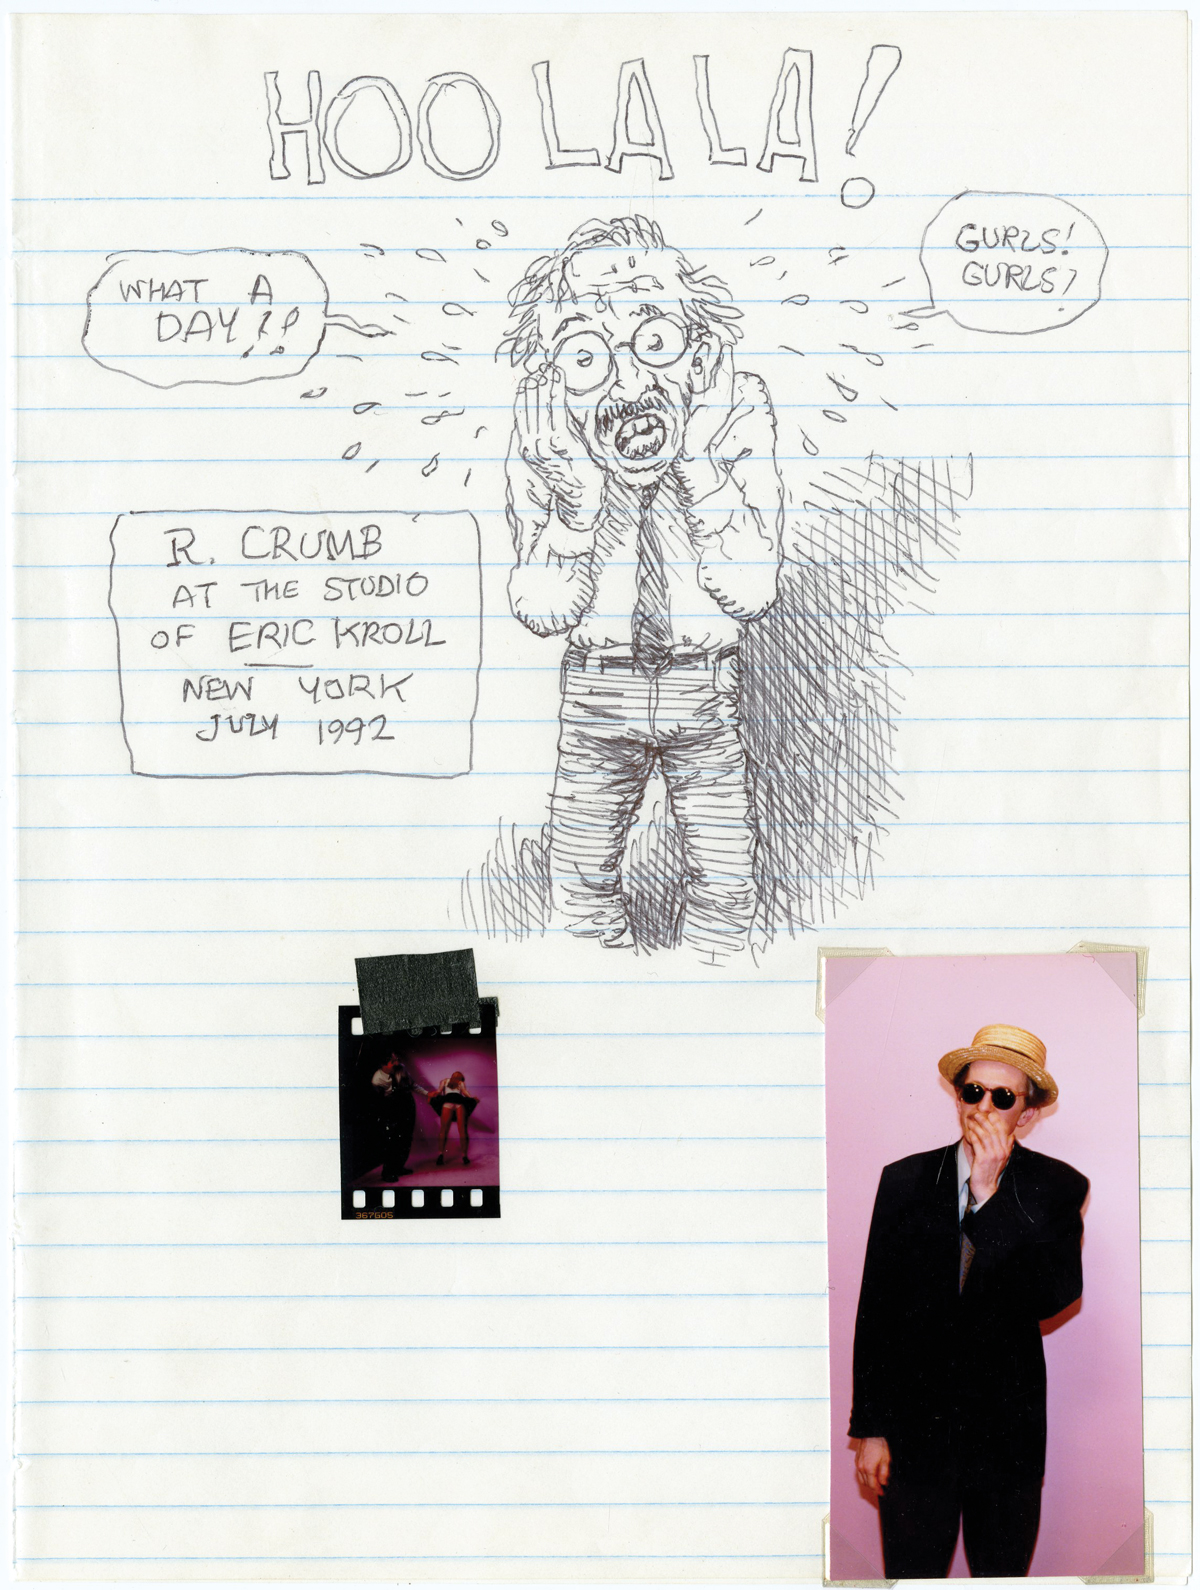 HOO LA LA!
WHAT A
DAY!?!
GURLS!
GURLS!
R. CRUMB
AT THE STUDIO
OF ERIC KROLL
NEW YORK
JULY 1992
367G05